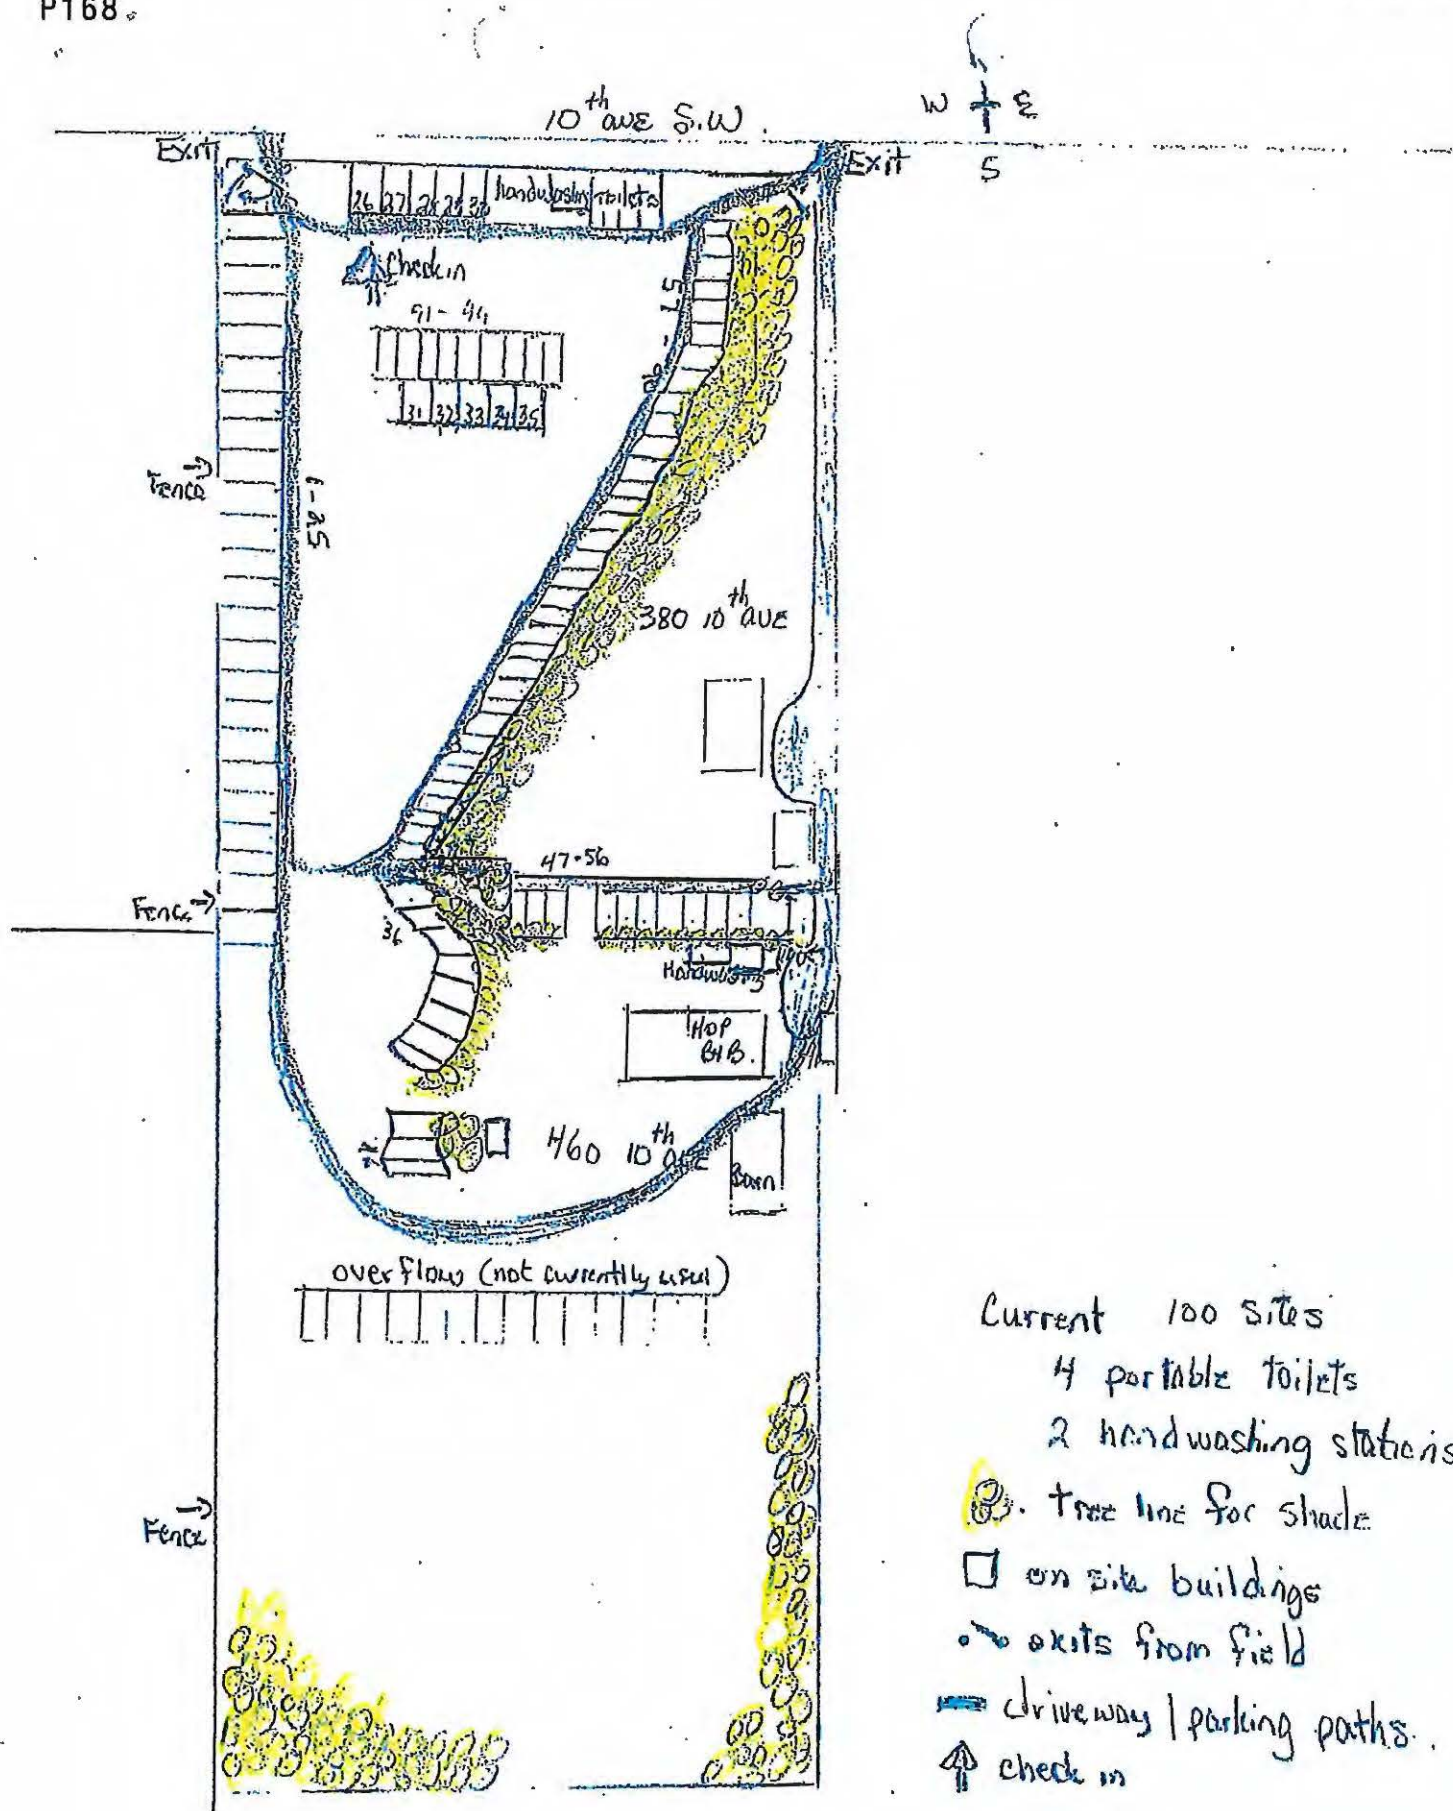 P168.
10th ave S.W.
W E
S
Exit
Exit
26 27 28 29 30 handwashing Toilets
Check in
91-99
31 32 33 34 35
57 -
Fence
1-25
380 10th ave
47-56
Fence
36
Handwashing
HOP
B+B.
460 10th ave
Barn
over flow (not currently used)
Fence
Current 100 Sites
4 portable toilets
2 handwashing stations
tree line for shade
on site buildings
exits from field
driveway / parking paths.
check in